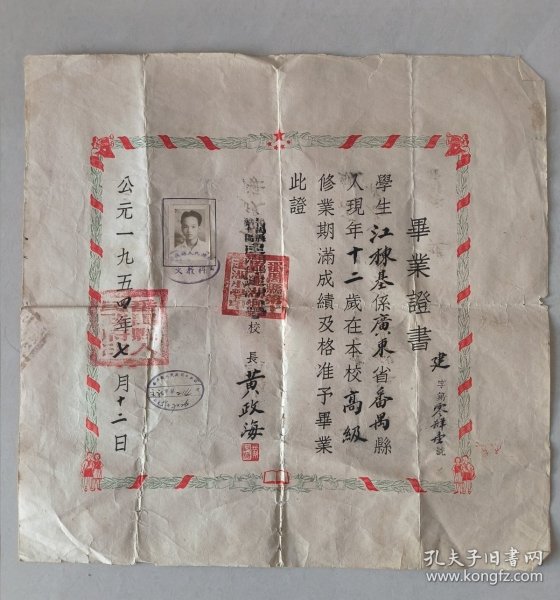 畢業證書
建字第零肆壹號
學生江棣基係廣東省番禺縣
人現年十二歲在本校高級
修業期滿成績及格准予畢業
此證
校長黃政海
公元一九五四年七月十二日
孔夫子旧书网
www.kongfz.com